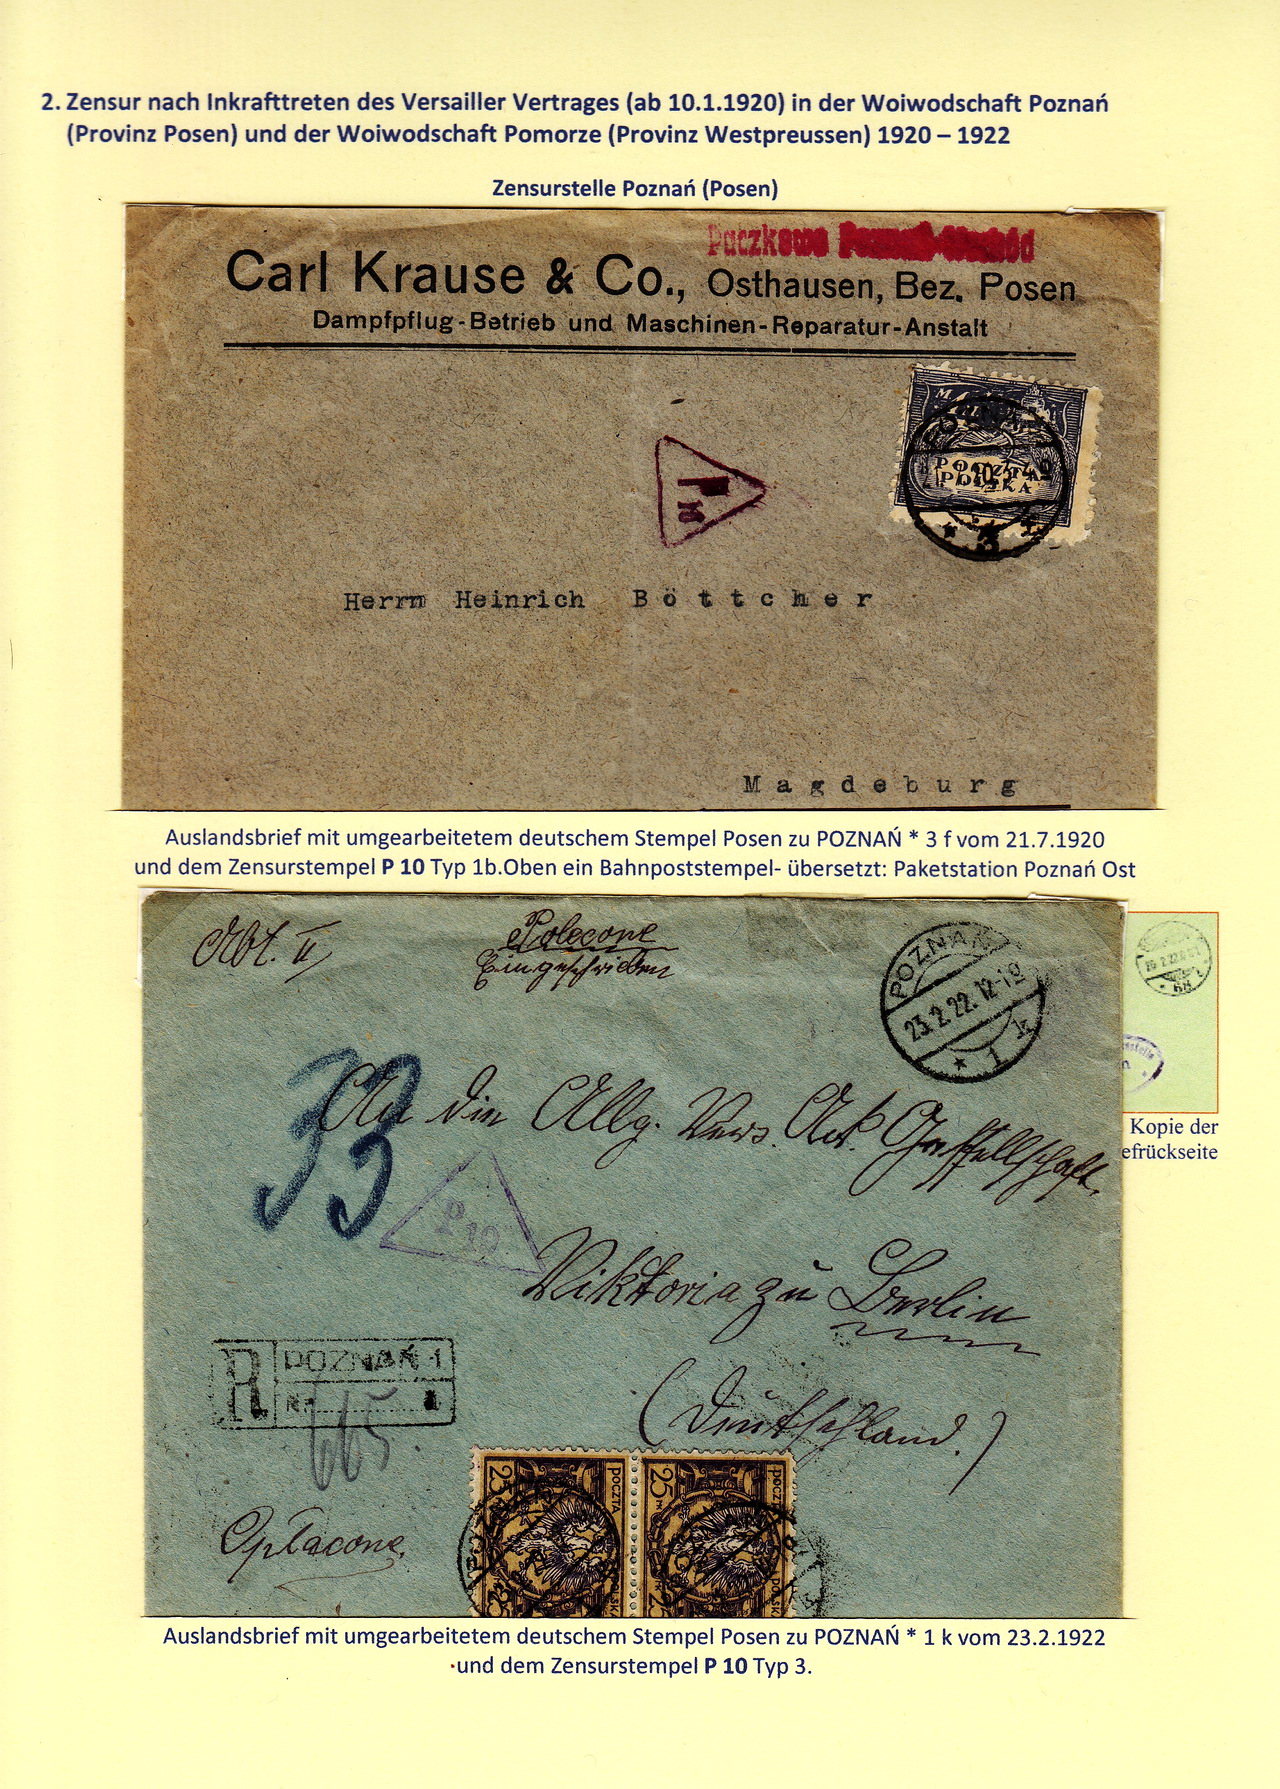 2. Zensur nach Inkrafttreten des Versailler Vertrages (ab 10.1.1920) in der Woiwodschaft Poznań
(Provinz Posen) und der Woiwodschaft Pomorze (Provinz Westpreussen) 1920 – 1922
Zensurstelle Poznań (Posen)
Paczkowo
Carl Krause & Co., Osthausen, Bez. Posen
Dampfpflug-Betrieb und Maschinen-Reparatur-Anstalt
POCZTA
POLSKA
* 3
P
10
Herrn Heinrich Böttcher
Magdeburg
Auslandsbrief mit umgearbeitetem deutschem Stempel Posen zu POZNAŃ * 3 f vom 21.7.1920
und dem Zensurstempel P 10 Typ 1b.Oben ein Bahnpoststempel- übersetzt: Paketstation Poznań Ost
Abt. II
Polecone
Eingeschrieben
POZNAŃ
23.2.22.12-1
* 1 k
33
An die Allg. Vers. Akt. Gesellschaft
P 10
Viktoria zu Berlin
(Deutschland.)
R POZNAŃ 1
Nr. 1
665
Opłacone
25 M POCZTA 25 M
Kopie der
efrückseite
Auslandsbrief mit umgearbeitetem deutschem Stempel Posen zu POZNAŃ * 1 k vom 23.2.1922
und dem Zensurstempel P 10 Typ 3.